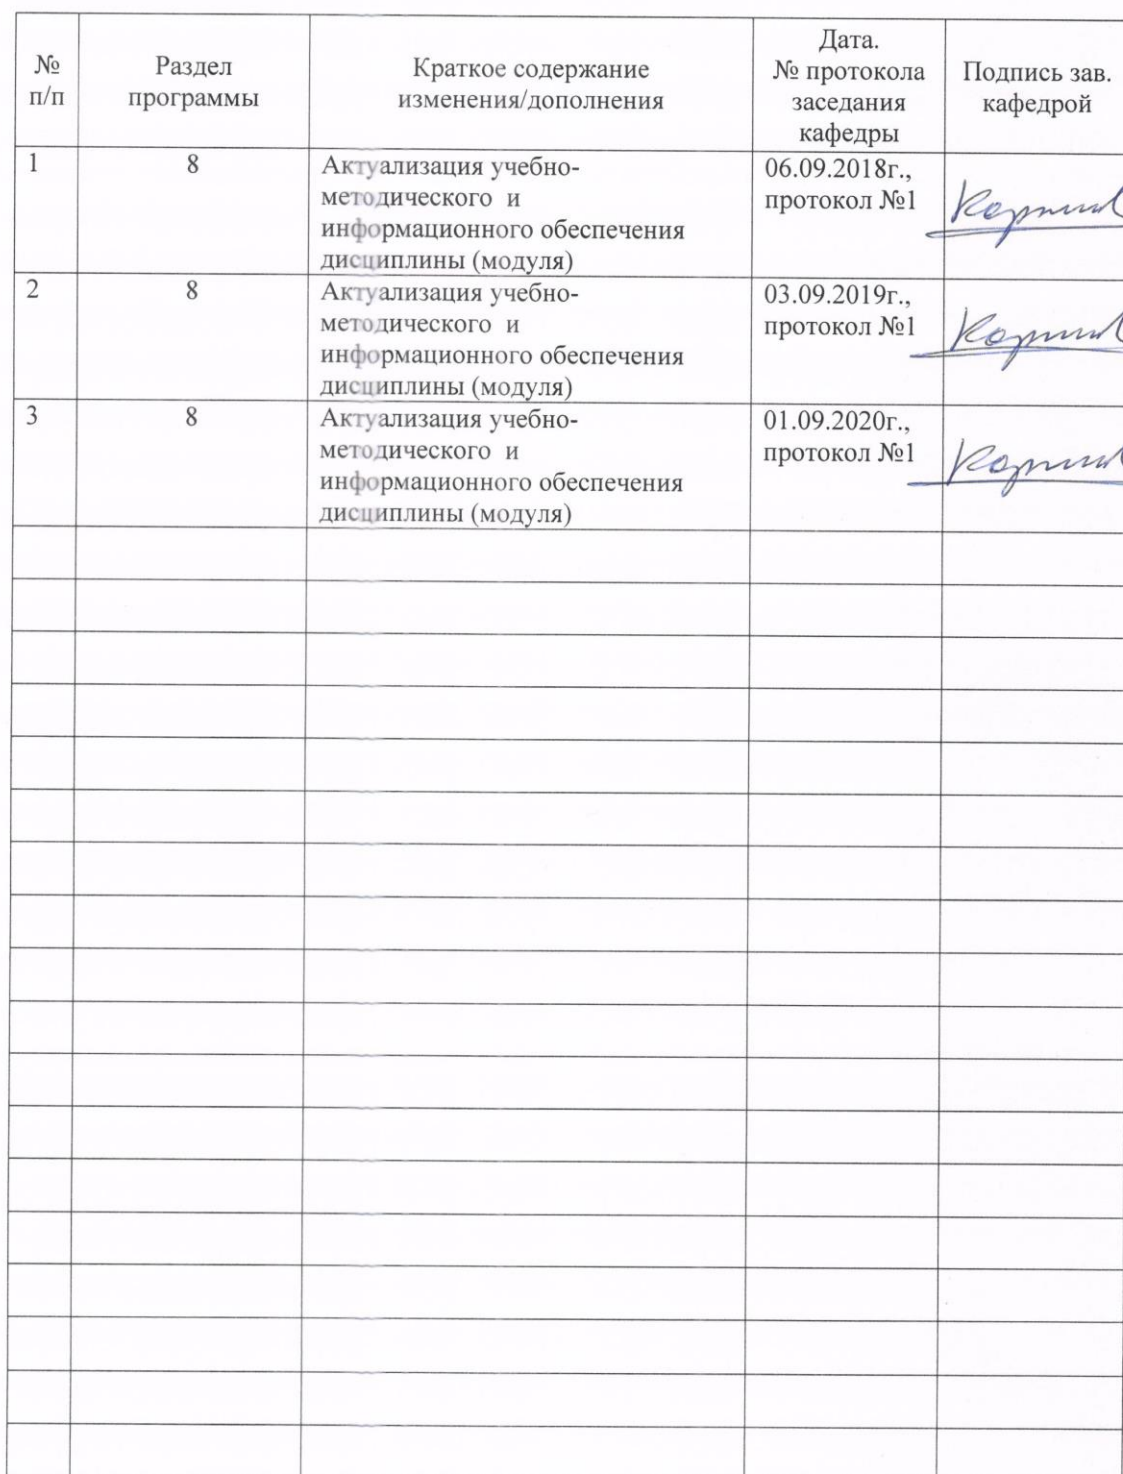 №
п/п
Раздел
программы
Краткое содержание
изменения/дополнения
Дата.
№ протокола
заседания
кафедры
Подпись зав.
кафедрой
1
8
Актуализация учебно-
методического и
информационного обеспечения
дисциплины (модуля)
06.09.2018г.,
протокол №1
2
8
Актуализация учебно-
методического и
информационного обеспечения
дисциплины (модуля)
03.09.2019г.,
протокол №1
3
8
Актуализация учебно-
методического и
информационного обеспечения
дисциплины (модуля)
01.09.2020г.,
протокол №1